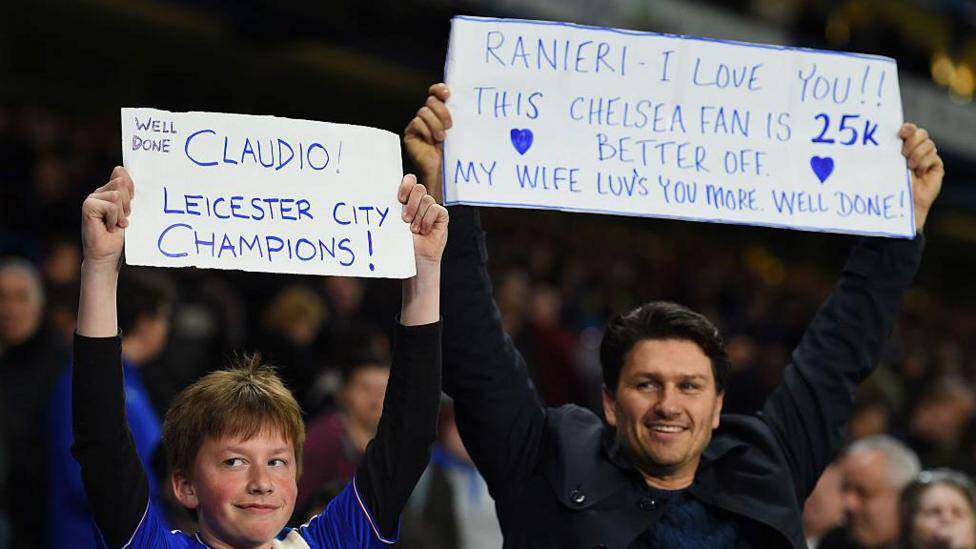 WELL
DONE
CLAUDIO!
LEICESTER CITY
CHAMPIONS!
RANIERI - I LOVE YOU!!
THIS CHELSEA FAN IS 25K
BETTER OFF.
MY WIFE LUV'S YOU MORE. WELL DONE!